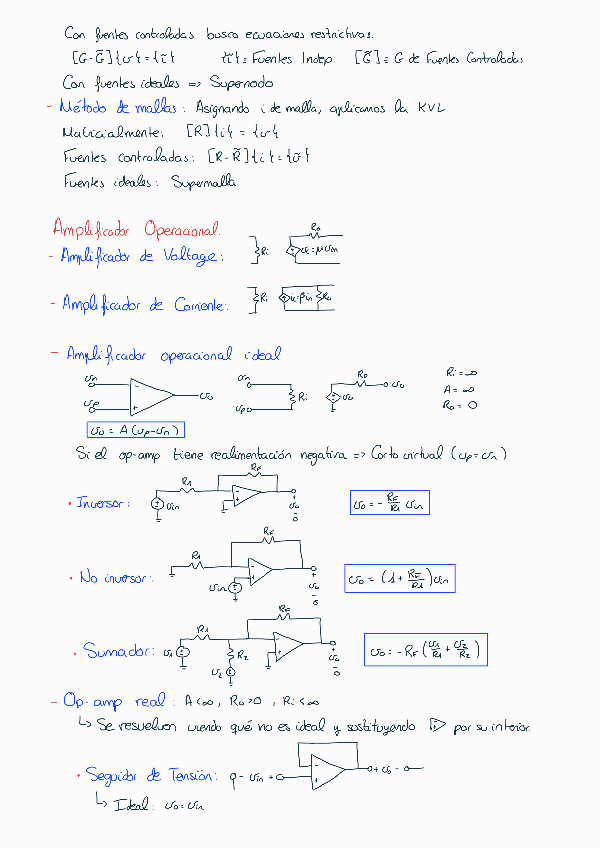 Con fuentes controladas busco ecuaciones restrictivas.
[G-G̃]{v}={i} {i}≡ Fuentes Indep [G̃]≡ G de Fuentes Controladas
Con fuentes ideales => Supernodo
- Método de mallas: Asignando i de malla, aplicamos la KVL
Matricialmente: [R]{i} = {v}
Fuentes controladas: [R-R̃]{i}={v}
Fuentes ideales: Supermalla
Amplificador Operacional.
- Amplificador de Voltage: Ri Ro =μvin
- Amplificador de Corriente: Ri =βin Ro
- Amplificador operacional ideal
vn vp - + vo vn vp Ri Ro vo vo Ri = ∞
A = ∞
Ro = 0
vo = A(vp-vn)
Si el op-amp tiene realimentación negativa => Corto virtual (vp=vn)
• Inversor: vin R1 RF - + + vo - vo = - RF/R1 vin
• No inversor: R1 RF vin - + + vo - vo = (1 + RF/R1)vin
• Sumador: v1 R1 v2 R2 RF - + + vo - vo = -RF(v1/R1 + v2/R2)
- Op-amp real: A<∞, Ro>0, Ri<∞
↳ Se resuelven viendo qué no es ideal y sustituyendo ▷ por su interior.
• Seguidor de Tensión: - vin + - + + vo -
↳ Ideal: vo=vin